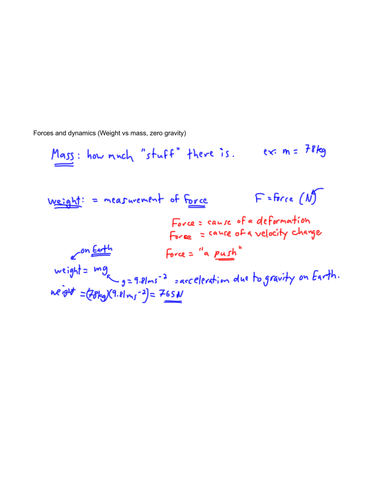 Forces and dynamics (Weight vs mass, zero gravity)
Mass: how much "stuff" there is. ex: m = 78kg
weight: = measurement of force F = force (N)
Force = cause of a deformation
Force = cause of a velocity change
on Earth Force = "a push"
weight = mg
g = 9.81ms⁻² = acceleration due to gravity on Earth.
weight = (78kg)(9.81ms⁻²) = 765N